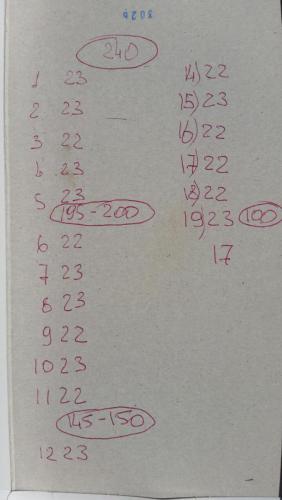 240
1 23
2 23
3 22
4 23
5 23
195-200
6 22
7 23
8 23
9 22
10 23
11 22
145-150
12 23
14) 22
15) 23
16) 22
17) 22
18) 22
19) 23 100
17